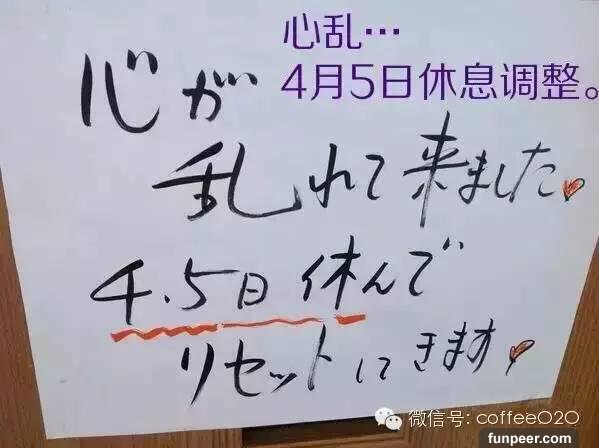 心乱…
4月5日休息调整。
心が
乱れて来ました
4.5日 休んで
リセットにきます
微信号: coffee020
funpeer.com